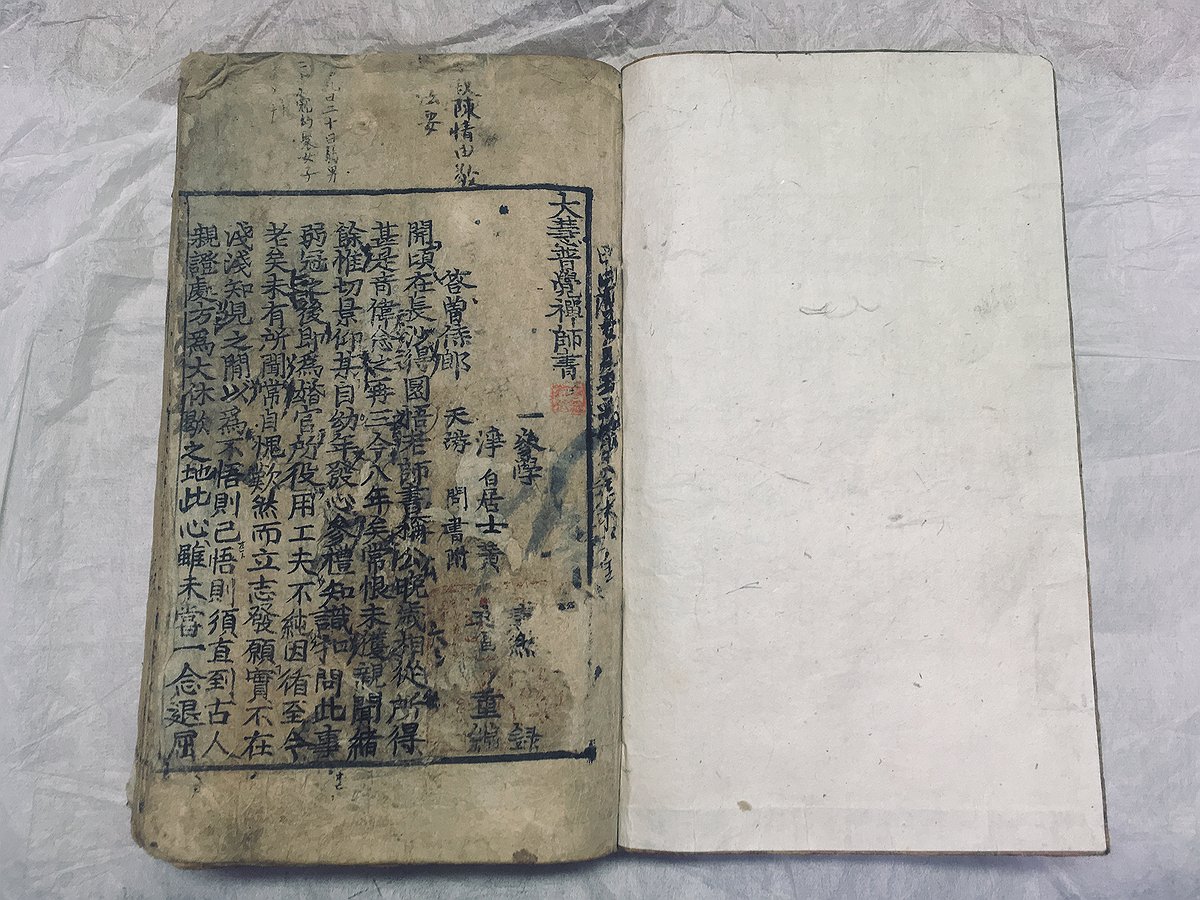 陳情由
法要
大慧普覺禪師書
一 參學 慧然 錄
淨 白居士 黃 重編
答曾侍郎 天游 問書附
開頃在長沙得圜悟老師書稱公晚歲相從所得
甚是奇偉念之再三今八年矣常恨未獲親聞緒
餘惟切景仰某自幼年發心參禮知識扣問此事
弱冠之後即為婚官所役用工夫不純因循至今
老矣未有所聞常自愧歎然而立志發願實不在
淺淺知見之間以為不悟則已悟則須直到古人
親證處方為大休歇之地此心雖未嘗一念退屈